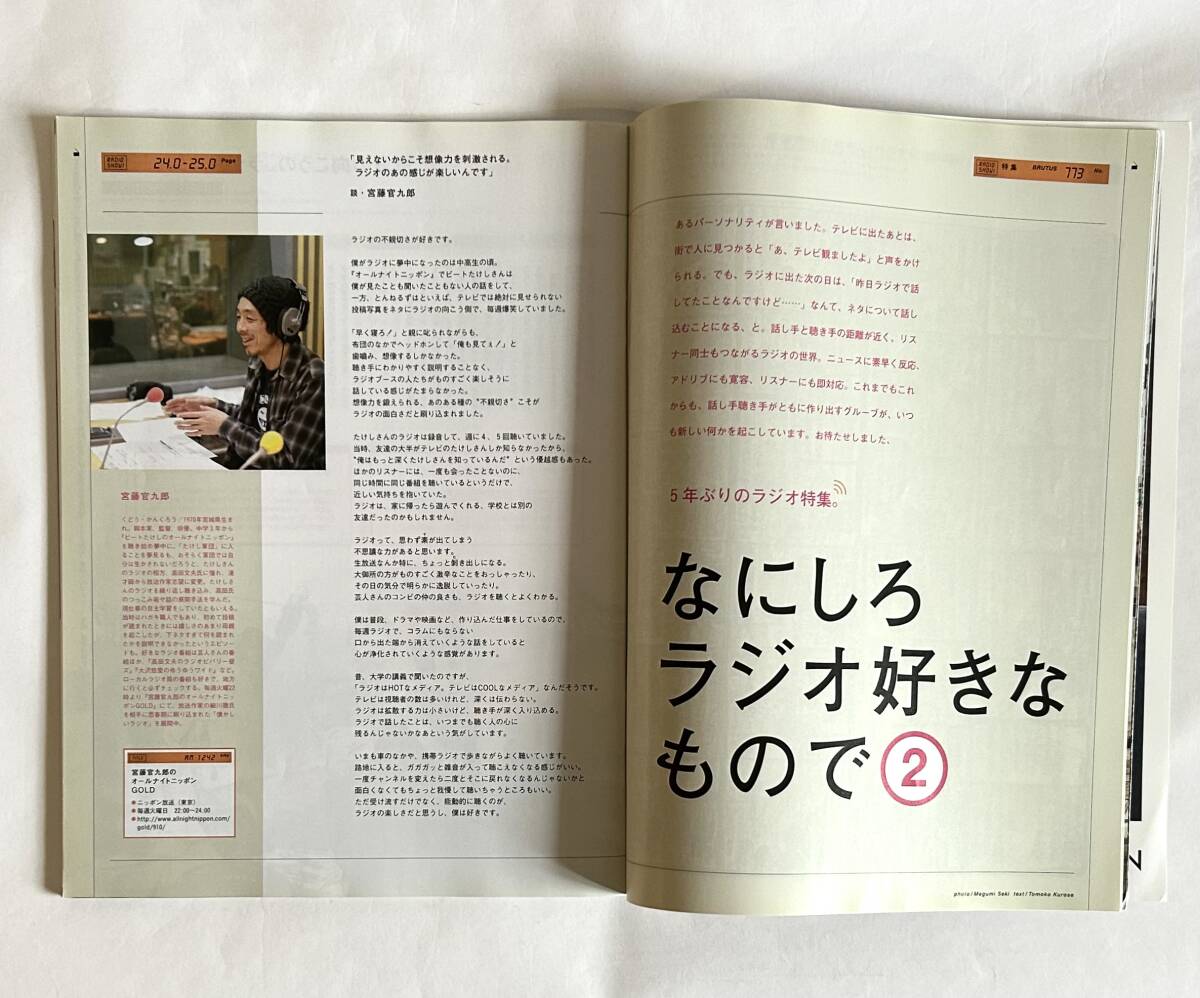 RADIO SHOW!
24.0-25.0 Page
「見えないからこそ想像力を刺激される。
ラジオのあの感じが楽しいんです」
談・宮藤官九郎
ラジオの不親切さが好きです。
僕がラジオに夢中になったのは中高生の頃。
『オールナイトニッポン』でビートたけしさんは
僕が見たことも聞いたこともない人の話をして、
一方、とんねるずはといえば、テレビでは絶対に見せられない
投稿写真をネタにラジオの向こう側で、毎週爆笑していました。
「早く寝ろ！」と親に叱られながらも、
布団のなかでヘッドホンして「俺も見てぇ！」と
歯噛み、想像するしかなかった。
聴き手にわかりやすく説明することなく、
ラジオブースの人たちがものすごく楽しそうに
話している感じがたまらなかった。
想像力を鍛えられる、あのある種の“不親切さ”こそが
ラジオの面白さだと刷り込まれました。
たけしさんのラジオは録音して、週に４、５回聴いていました。
当時、友達の大半がテレビのたけしさんしか知らなかったから、
“俺はもっと深くたけしさんを知っているんだ”という優越感もあった。
ほかのリスナーには、一度も会ったことないのに、
同じ時間に同じ番組を聴いているというだけで、
近しい気持ちを抱いていた。
ラジオは、家に帰ったら遊んでくれる、学校とは別の
友達だったのかもしれません。
ラジオって、思わず素が出てしまう
不思議な力があると思います。
生放送なんか特に、ちょっと剥き出しになる。
大御所の方がものすごく激辛なことをおっしゃったり、
その日の気分で明らかに逸脱していったり。
芸人さんのコンビの仲の良さも、ラジオを聴くとよくわかる。
僕は普段、ドラマや映画など、作り込んだ仕事をしているので、
毎週ラジオで、コラムにもならない
口から出た端から消えていくような話をしていると
心が浄化されていくような感覚があります。
昔、大学の講義で聞いたのですが、
「ラジオはHOTなメディア。テレビはCOOLなメディア」なんだそうです。
テレビは視聴者の数は多いけれど、深くは伝わらない。
ラジオは拡散する力は小さいけど、聴き手が深く入り込める。
ラジオで話したことは、いつまでも聴く人の心に
残るんじゃないかなあという気がしています。
いまも車のなかや、携帯ラジオで歩きながらよく聴いています。
路地に入ると、ガガガッと雑音が入って聴こえなくなる感じがいい。
一度チャンネルを変えたら二度とそこに戻れなくなるんじゃないかと
面白くなくてもちょっと我慢して聴いちゃうところもいい。
ただ受け流すだけでなく、能動的に聴くのが、
ラジオの楽しさだと思うし、僕は好きです。
宮藤官九郎
くどう・かんくろう／1970年宮城県生ま
れ。脚本家、監督、俳優。中学３年から
『ビートたけしのオールナイトニッポン』
を聴き始め夢中に。「たけし軍団」に入
ることを夢見るも、おそらく軍団では自
分は生かされないだろうと、たけしさん
のラジオの相方、高田文夫氏に憧れ、漫
才師から放送作家志望に変更。たけしさ
んのラジオを繰り返し聴き込み、高田氏
のつっこみ術や話の展開手法を学んだ。
現仕事の自主学習をしていたともいえる。
当時はハガキ職人でもあり、初めて投稿
が読まれたときには嬉しさのあまり母親
を起こしたが、下ネタすぎて何を読まれ
たかを説明できなかったというエピソー
ドも。好きなラジオ番組は芸人さんの番
組ほか、『高田文夫のラジオビバリー昼
ズ』『大沢悠里のゆうゆうワイド』など。
ローカルラジオ局の番組も好きで、地方
に行くと必ずチェックする。毎週火曜22
時より『宮藤官九郎のオールナイトニッ
ポンGOLD』にて、放送作家の細川徹氏
を相手に思春期に刷り込まれた「懐かし
いラジオ」を展開中。
AM 1242
宮藤官九郎の
オールナイトニッポン
GOLD
●ニッポン放送（東京）
●毎週火曜日 22:00〜24:00
●http://www.allnightnippon.com/
gold/910/
RADIO SHOW!
特集 BRUTUS 773 No.
あるパーソナリティが言いました。テレビに出たあとは、
街で人に見つかると「あ、テレビ観ましたよ」と声をかけ
られる。でも、ラジオに出た次の日は、「昨日ラジオで話
してたことなんですけど……」なんて、ネタについて話し
込むことになる、と。話し手と聴き手の距離が近く、リス
ナー同士もつながるラジオの世界。ニュースに素早く反応、
アドリブにも寛容、リスナーにも即対応。これまでもこれ
からも、話し手聴き手がともに作り出すグループが、いつ
も新しい何かを起こしています。お待たせしました、
5年ぶりのラジオ特集。
なにしろ
ラジオ好きな
もので②
photo/Megumi Seki text/Tomoko Kurose